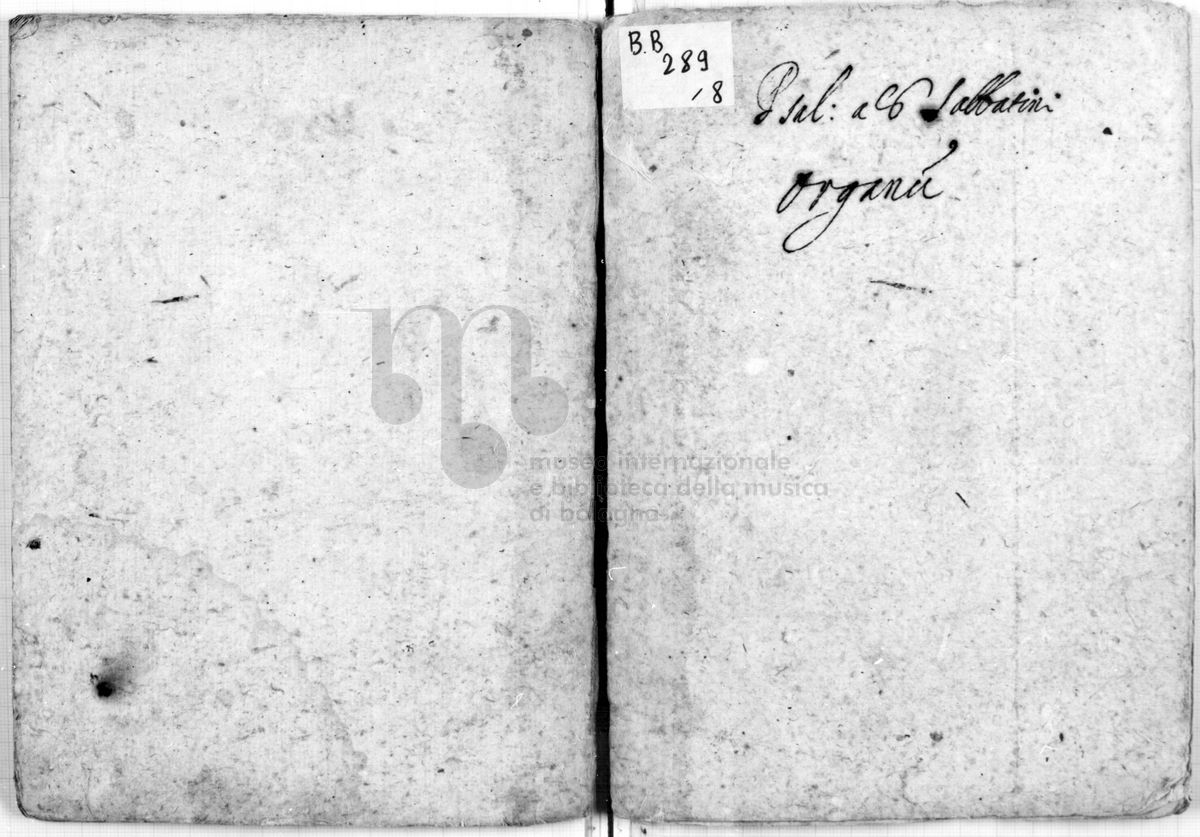 B.B
289
/8
Psal: a 6 Sabbatini
Organũ
museo internazionale
e biblioteca della musica
di bologna